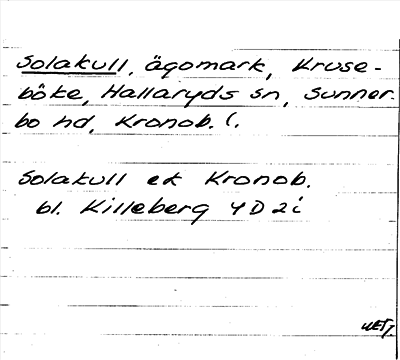 Solakull, ägomark, Kruse-
böke, Hallaryds sn, Sunner-
bo hd, Kronob. l.
Solakull ek Kronob.
bl. Killeberg 4D2i